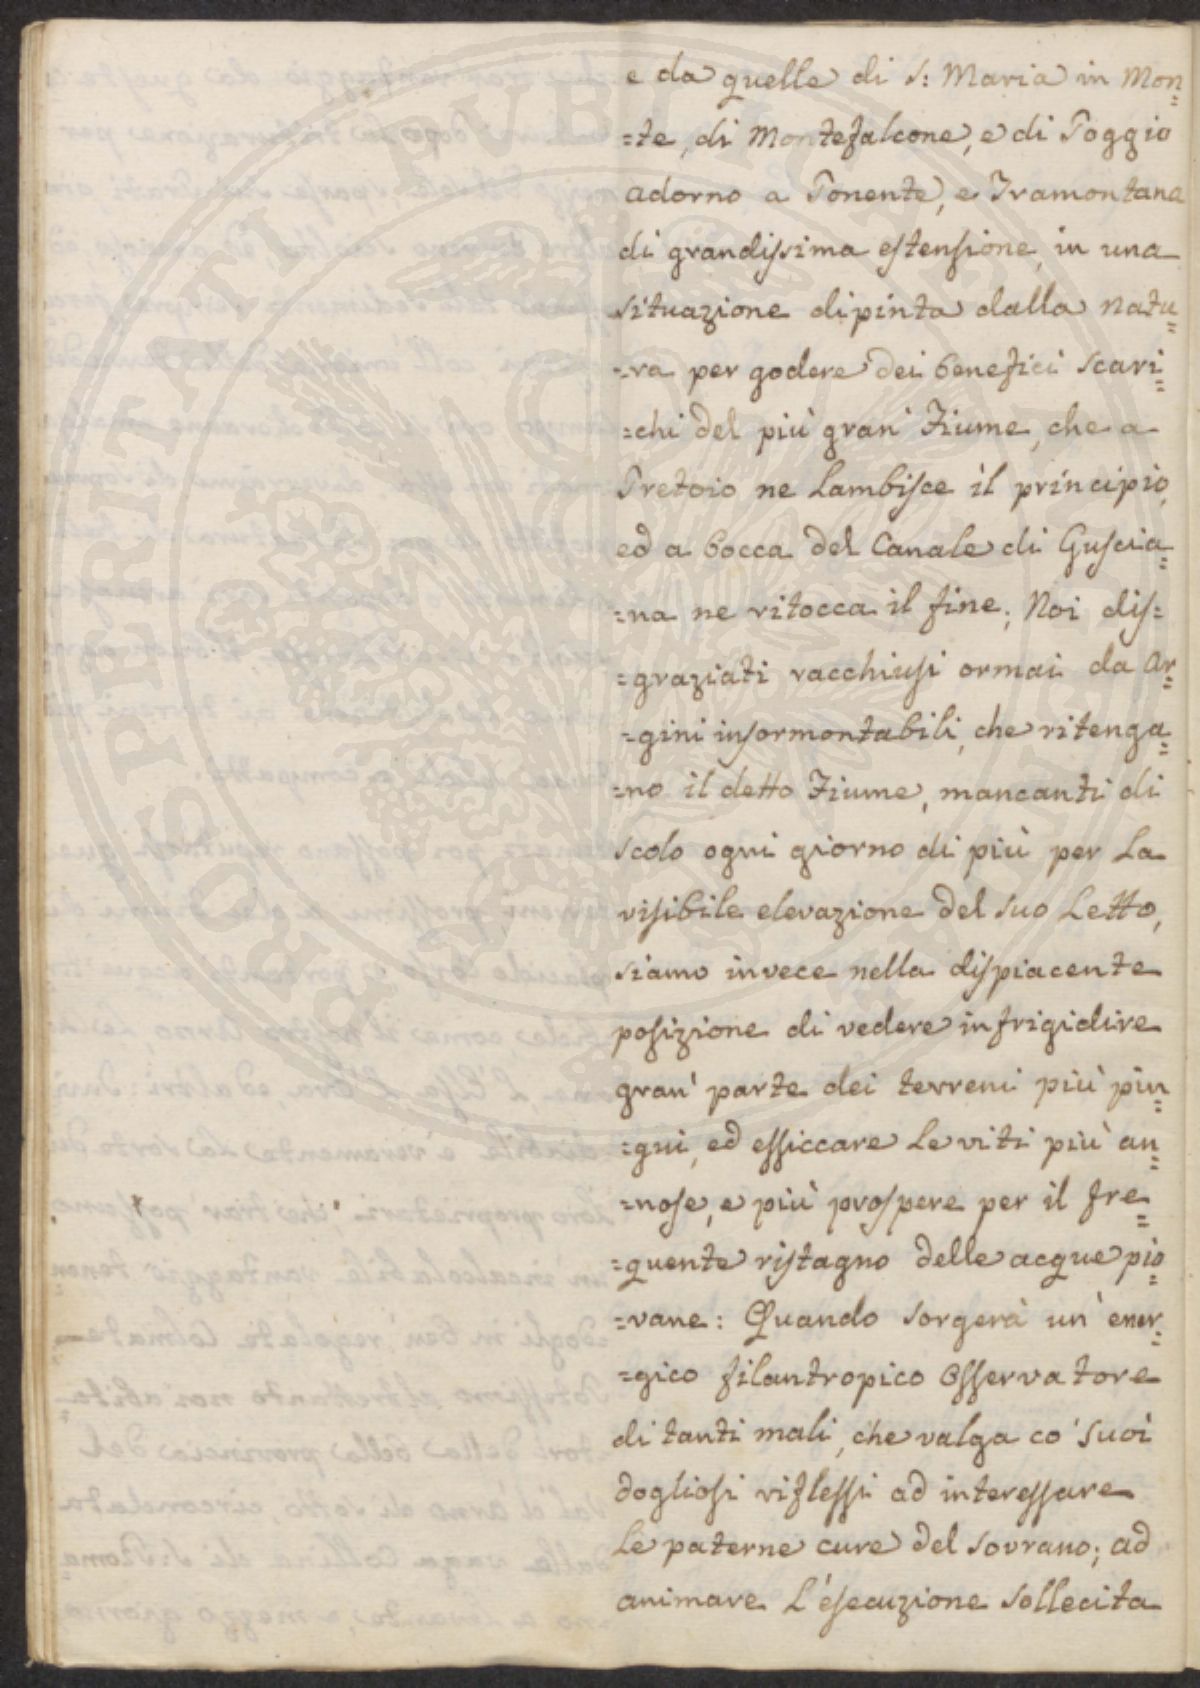 e da quelle di S: Maria in Mon=
=te, di Montefalcone, e di Poggio
adorno a Ponente, e Tramontana
di grandissima estensione, in una
situazione dipinta dalla natu=
=ra per godere dei benefici scari=
=chi del più gran' Fiume, che a
Pretoio ne Lambisce il principio,
ed a bocca del Canale di Guscia=
=na ne ritocca il fine; Noi dis=
=graziati racchiusi ormai da Ar=
=gini insormontabili, che ritenga=
=no il detto Fiume, mancanti di
scolo ogni giorno di più per La
visibile elevazione del suo Letto,
siamo invece nella dispiacente
posizione di vedere infrigidire
gran' parte dei terreni più pin=
=gui, ed essiccare Le viti più an=
=nose, e più prospere per il fre=
=quente ristagno delle acque pio=
=vane: Quando sorgerà un' ener=
=gico filantropico Osservatore
di tanti mali, che valga co' suoi
dogliosi riflessi ad interessare
Le paterne cure del Sovrano; ad
animare L'esecuzione sollecita
PROSPERITATI PUBLICAE AUGENDAE